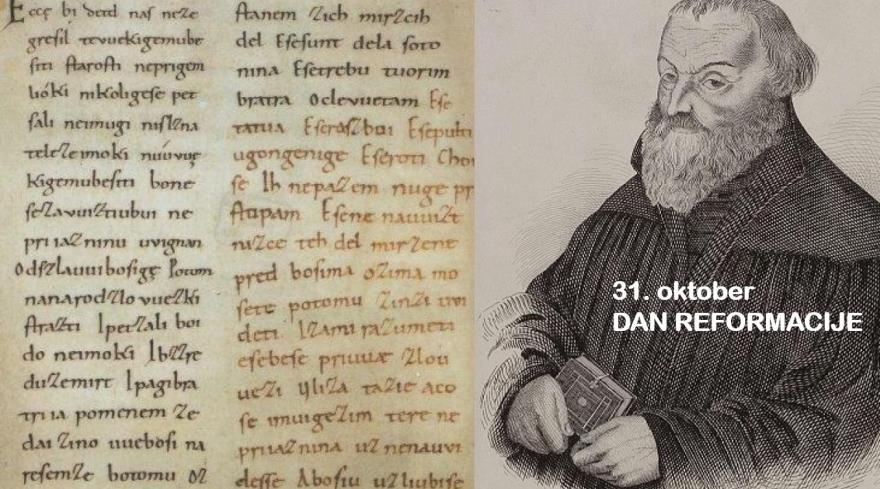 Ecce bi detd naſ neze
greſil tevuekigemube
ſiti ſtaroſti neprigem
lióki nikoligeſe pet
ſali neimugi niſlzna
teleze imoki nuúvuę
kigemubeſiti bone
ſezavuiztiubui ne
priiazninu uvignan
Odſzlauuiboſigę Potom
nanarodzlovuezki
ſtrazti Ipetzali boi
do neimoki Ibzzre
duzemirt Ipagibra
triia pomenem ze
dai zino uueboſi na
reſemze botomu oz
ſtanem zich mirzcih
del Eſeſunt dela ſoto
nina Eſetrebu tuorim
bratra Oclevuetam Eſe
tatua Eſeraſzboi Eſepulti
ugongenige Eſeroti Choi
ſe Ih nepazem nuge pr
ſtupam Eſene nauuizt
nizce teh del mirzene
pred boſima ozima mo
ſete potomu zinzi uvi
deti Izami razumeti
eſebeſe priuuæ zlou
uezi Uliza tazie aco
ſe imuigezim tere ne
priiaznina uznenauvi
deſſe Aboſiu uzliubiſe
31. oktober
DAN REFORMACIJE